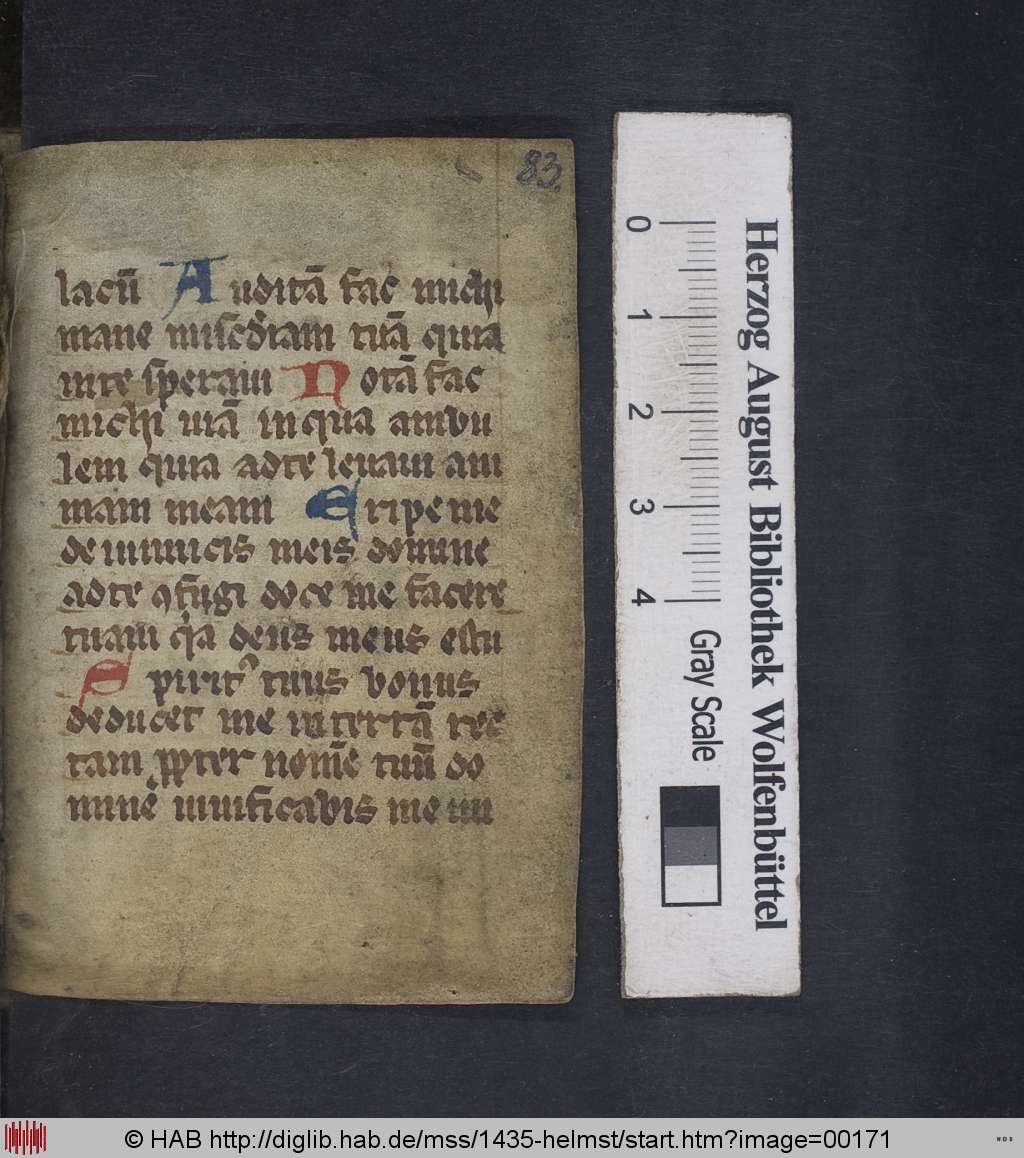 83.
lacū Auditā fac michi
mane misc̄diam tuā quia
inte speraui Notā fac
michi uiā inqua ambu
lem quia adte leuaui ani
mam meam Eripe me
de inimicis meis domine
adte ꝯfugi doce me facere
tuam qͥa deus meus estu
Spiritꝰ tuus bonus
deducet me interrā rec
tam ꝓpter nomē tuū do
mine uiuificabis me in
0
1
2
3
4
Gray Scale
Herzog August Bibliothek Wolfenbüttel
© HAB http://diglib.hab.de/mss/1435-helmst/start.htm?image=00171